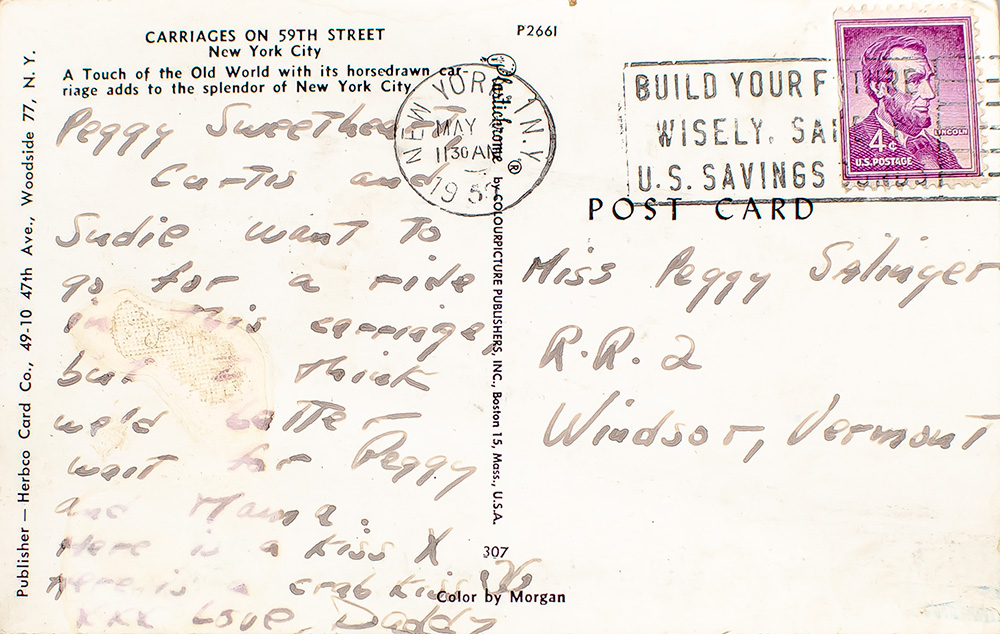 CARRIAGES ON 59TH STREET
New York City
A Touch of the Old World with its horsedrawn car-
riage adds to the splendor of New York City.
P2661
Publisher — Herbco Card Co., 49-10 47th Ave., Woodside 77, N. Y.
Plastichrome ® by COLOURPICTURE PUBLISHERS, INC., Boston 15, Mass., U.S.A.
NEW YORK, N.Y.
MAY
1130 AM
195
BUILD YOUR FUTURE
WISELY, SAFELY
U.S. SAVINGS BONDS
LINCOLN
4¢
U.S. POSTAGE
POST CARD
Peggy Sweetheart,
Curtis and
Sudie want to
go for a ride
in this carriage,
but I think
we'd better
wait for Peggy
and Mama.
Here is a kiss X
Here is a crab kiss
XXX Love, Daddy
Miss Peggy Salinger
R.R. 2
Windsor, Vermont
307
Color by Morgan